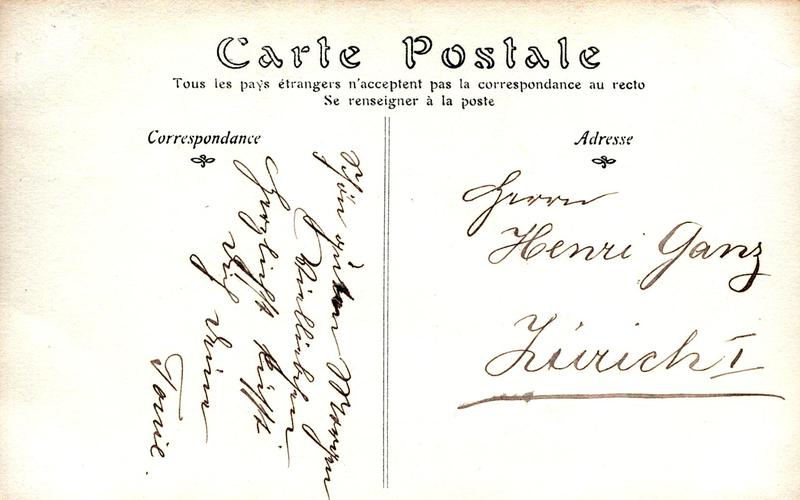 Carte Postale
Tous les pays étrangers n'acceptent pas la correspondance au recto
Se renseigner à la poste
Correspondance
Schön guten Morgen
Vielliebchen
Herzlichst küsst
Dich Deine
Tonie.
Adresse
Herrn
Henri Ganz
Zürich I